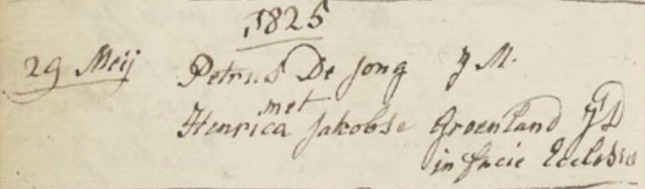 1825
29 Meij Petrus De Jong J M.
met
Henrica Jakobse Groenland J D
in facie Ecclesia